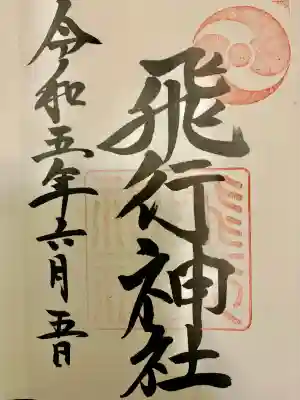 飛行神社
令和五年六月五日